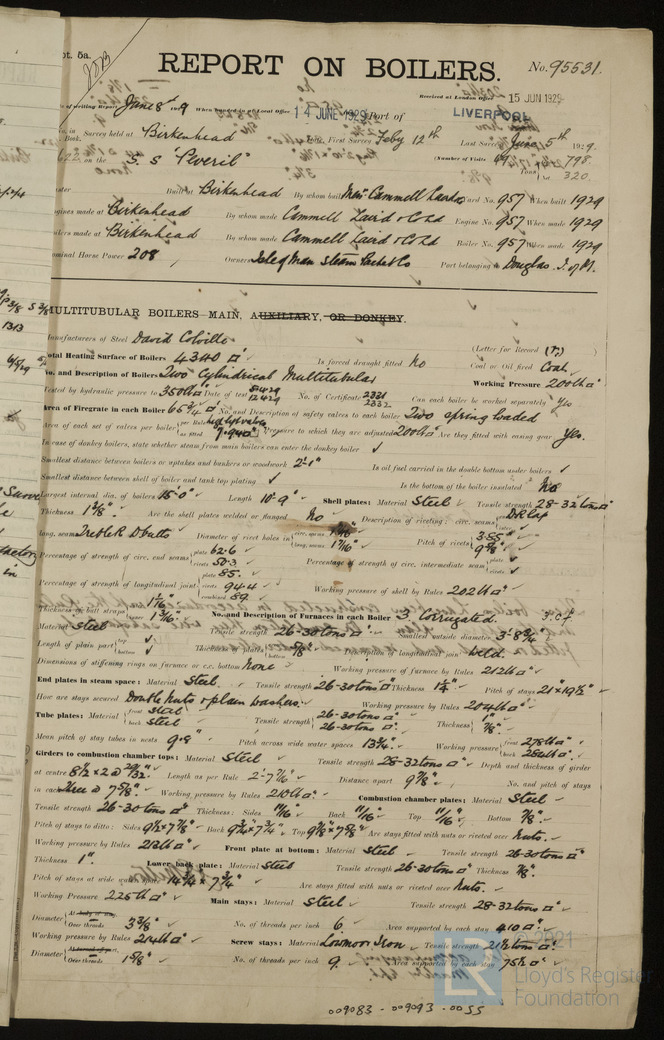 pt. 5a.
REPORT ON BOILERS.
No. 95531.
Received at London Office 15 JUN 1929
of writing Report June 8th 1929 When handed in at Local Office 14 JUNE 1929 Port of LIVERPOOL
No. in Survey held at Birkenhead Date, First Survey Feby 12th Last Survey June 5th 1929
Book. on the S. S. "Peveril" (Number of Visits
Tons 798.
320.
Built at Birkenhead By whom built Mess Cammell Laird & Co Yard No. 957 When built 1929
Engines made at Birkenhead By whom made Cammell Laird & Co Ld Engine No. 957 When made 1929
Boilers made at Birkenhead By whom made Cammell Laird & Co Ld Boiler No. 957 When made 1929
Nominal Horse Power 208 Owners Isle of Man Steam Packet Co Port belonging to Douglas I. of M.
MULTITUBULAR BOILERS MAIN, AUXILIARY, OR DONKEY.
Manufacturers of Steel David Colville (Letter for Record (S))
Total Heating Surface of Boilers 4340 □' Is forced draught fitted No Coal or Oil fired Coal
No. and Description of Boilers Two Cylindrical Multitubular Working Pressure 200 lb □"
Tested by hydraulic pressure to 350 lb □" Date of test 8.4.29 12.4.29 No. of Certificate 2331 2332 Can each boiler be worked separately Yes
Area of Firegrate in each Boiler 65¾ □' No. and Description of safety valves to each boiler Two spring loaded
Area of each set of valves per boiler per Rule as fitted 7.940" Pressure to which they are adjusted 200 lb □" Are they fitted with easing gear Yes.
In case of donkey boilers, state whether steam from main boilers can enter the donkey boiler ✓
Smallest distance between boilers or uptakes and bunkers or woodwork 2'-1" Is oil fuel carried in the double bottom under boilers ✓
Smallest distance between shell of boiler and tank top plating ✓ Is the bottom of the boiler insulated No
Largest internal dia. of boilers 15'-0" Length 10'-9" Shell plates: Material Steel Tensile strength 28-32 tons □"
Thickness 1⅛" Are the shell plates welded or flanged No Description of riveting: circ. seams D R Lap
long. seams Treble R D butts Diameter of rivet holes in circ. seams long. seams 1 1/16" Pitch of rivets 3.85" 9⅜"
Percentage of strength of circ. end seams plate 62.6 rivets 50.3 Percentage of strength of circ. intermediate seam plate ✓ rivets ✓
Percentage of strength of longitudinal joint plate 85. rivets 94.4 combined 89. Working pressure of shell by Rules 202 lb □"
Thickness of butt straps 1 1/16" 1 3/16" No. and Description of Furnaces in each Boiler 3 Corrugated. 3. C.F.
Material Steel Tensile strength 26-30 tons □" Smallest outside diameter 3'-8¾"
Length of plain part top ✓ bottom ✓ Thickness of plates bottom ⅝" Description of longitudinal joint weld.
Dimensions of stiffening rings on furnace or c.c. bottom None Working pressure of furnace by Rules 212 lb □"
End plates in steam space: Material Steel Tensile strength 26-30 tons □" Thickness 1¼" Pitch of stays 21" x 19½"
How are stays secured Double nuts & plain washers. Working pressure by Rules 204 lb □"
Tube plates: Material front Steel back Steel Tensile strength 26-30 tons □" 26-30 tons □" Thickness 1" ⅞"
Mean pitch of stay tubes in nests 9.8" Pitch across wide water spaces 13¾" Working pressure front 278 lb □" back 284 lb □"
Girders to combustion chamber tops: Material Steel Tensile strength 28-32 tons □" Depth and thickness of girder
at centre 8½" x 2 @ Length as per Rule 2'-7 7/16" Distance apart 9⅞" No. and pitch of stays
in each Three @ 7⅝" Working pressure by Rules 210 lb □" Combustion chamber plates: Material Steel
Tensile strength 26-30 tons □" Thickness: Sides 11/16" Back 11/16" Top 11/16" Bottom ⅞"
Pitch of stays to ditto: Sides 9½" x 7⅞" Back 9¾" x 7¾" Top 9⅞" x 7⅝" Are stays fitted with nuts or riveted over Nuts.
Working pressure by Rules 213 lb □" Front plate at bottom: Material Steel Tensile strength 26-30 tons □"
Thickness 1". Lower back plate: Material Steel Tensile strength 26-30 tons □" Thickness ⅞".
Pitch of stays at wide water space 14¼" x 7¾" Are stays fitted with nuts or riveted over Nuts.
Working Pressure 225 lb □" Main stays: Material Steel Tensile strength 28-32 tons □"
Diameter At body of stay, or Over threads 3⅜" No. of threads per inch 6 Area supported by each stay 410 □"
Working pressure by Rules 214 lb □" Screw stays: Material Lowmoor Iron Tensile strength 21½ tons □"
Diameter At turned off part, or Over threads 1⅝" No. of threads per inch 9. Area supported by each stay 75½ □"
© 2021
Lloyd's Register
Foundation
009083-009093-0055